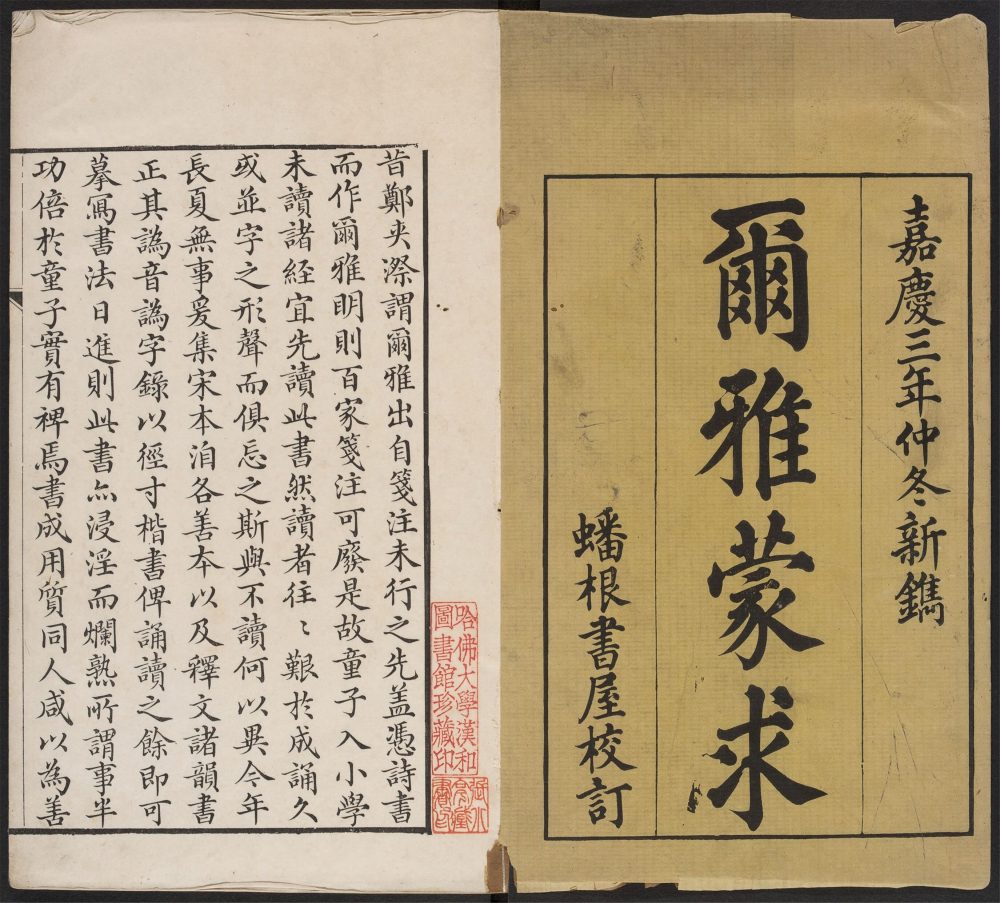 嘉慶三年仲冬新鐫
爾雅蒙求
蟠根書屋校訂
哈佛大學漢和
圖書館珍藏印
昔鄭夾漈謂爾雅出自箋注未行之先蓋憑詩書
而作爾雅明則百家箋注可廢是故童子入小學
未讀諸經宜先讀此書然讀者往〻艱於成誦久
或並字之形聲而俱忘之斯與不讀何以異今年
長夏無事爰集宋本洎各善本以及釋文諸韻書
正其譌音譌字錄以徑寸楷書俾誦讀之餘即可
摹寫書法日進則此書亦浸淫而爛熟所謂事半
功倍於童子實有裨焉書成用質同人咸以為善